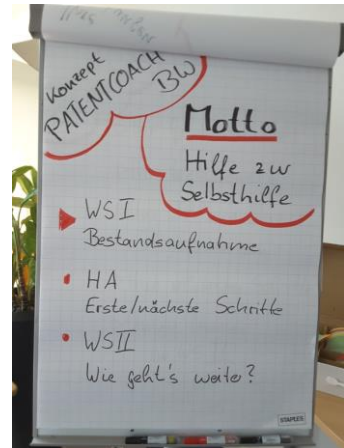 Konzept
PATENTCOACH
BW
Motto
Hilfe zur
Selbsthilfe
WS I
Bestandsaufnahme
HA
Erste/nächste Schritte
WS II
Wie geht's weiter?
STAPLES